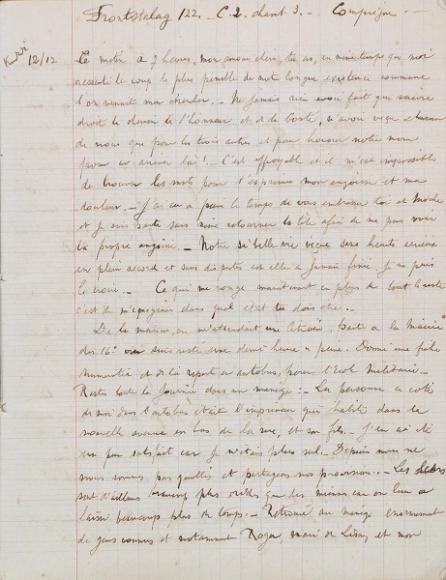 Frontstalag 122. - C. 2. chant 3. - Compiègne.
12/12
Ce matin à 7 heures, mon amour chéri, tu as, en même temps que moi
ressenti le coup le plus pénible de notre longue existence commune
l'on venait me chercher. - Ne jamais rien avoir fait que suivre
droit le devoir de l'honneur et de la bonté, n'avoir vécu chacun
de nous que pour les trois autres et pour honorer notre nom
pour en arriver là! C'est effroyable et il m'est impossible
de trouver les mots pour t'exprimer mon angoisse et ma
douleur. - J'ai eu à peine le temps de vous embrasser toi et
et je suis parti sans me retourner la tête afin de ne pas voir
ta propre angoisse. - Notre si belle vie vécue sans heurts
en plein accord et sans disputes est elle à jamais finie, je ne puis
le croire. - Ce qui me ronge maintenant en plus de tout le reste
c'est de m'imaginer dans quel état tu dois être. -
De la maison, on m'attendait une Citroën, parti à la Mairie
du 16e suis resté une demi heure à peine. Donné une fiche
numérotée et de là reparti en autobus, pour l'école militaire. -
Restés toute la journée dans un manège. - La personne à côté
de moi dans l'autobus était qui habite dans la
nouvelle avenue en bas de la rue, et son fils. - J'en ai été
un peu satisfait car je n'étais plus seul. Depuis nous ne
nous sommes pas quittés et partageons nos provisions. - Les
sont d'ailleurs beaucoup plus utiles que les miennes car on leur a
laissé beaucoup plus de temps. - Retrouvé au manège énormément
de gens connus et notamment Roger, mari de et mon